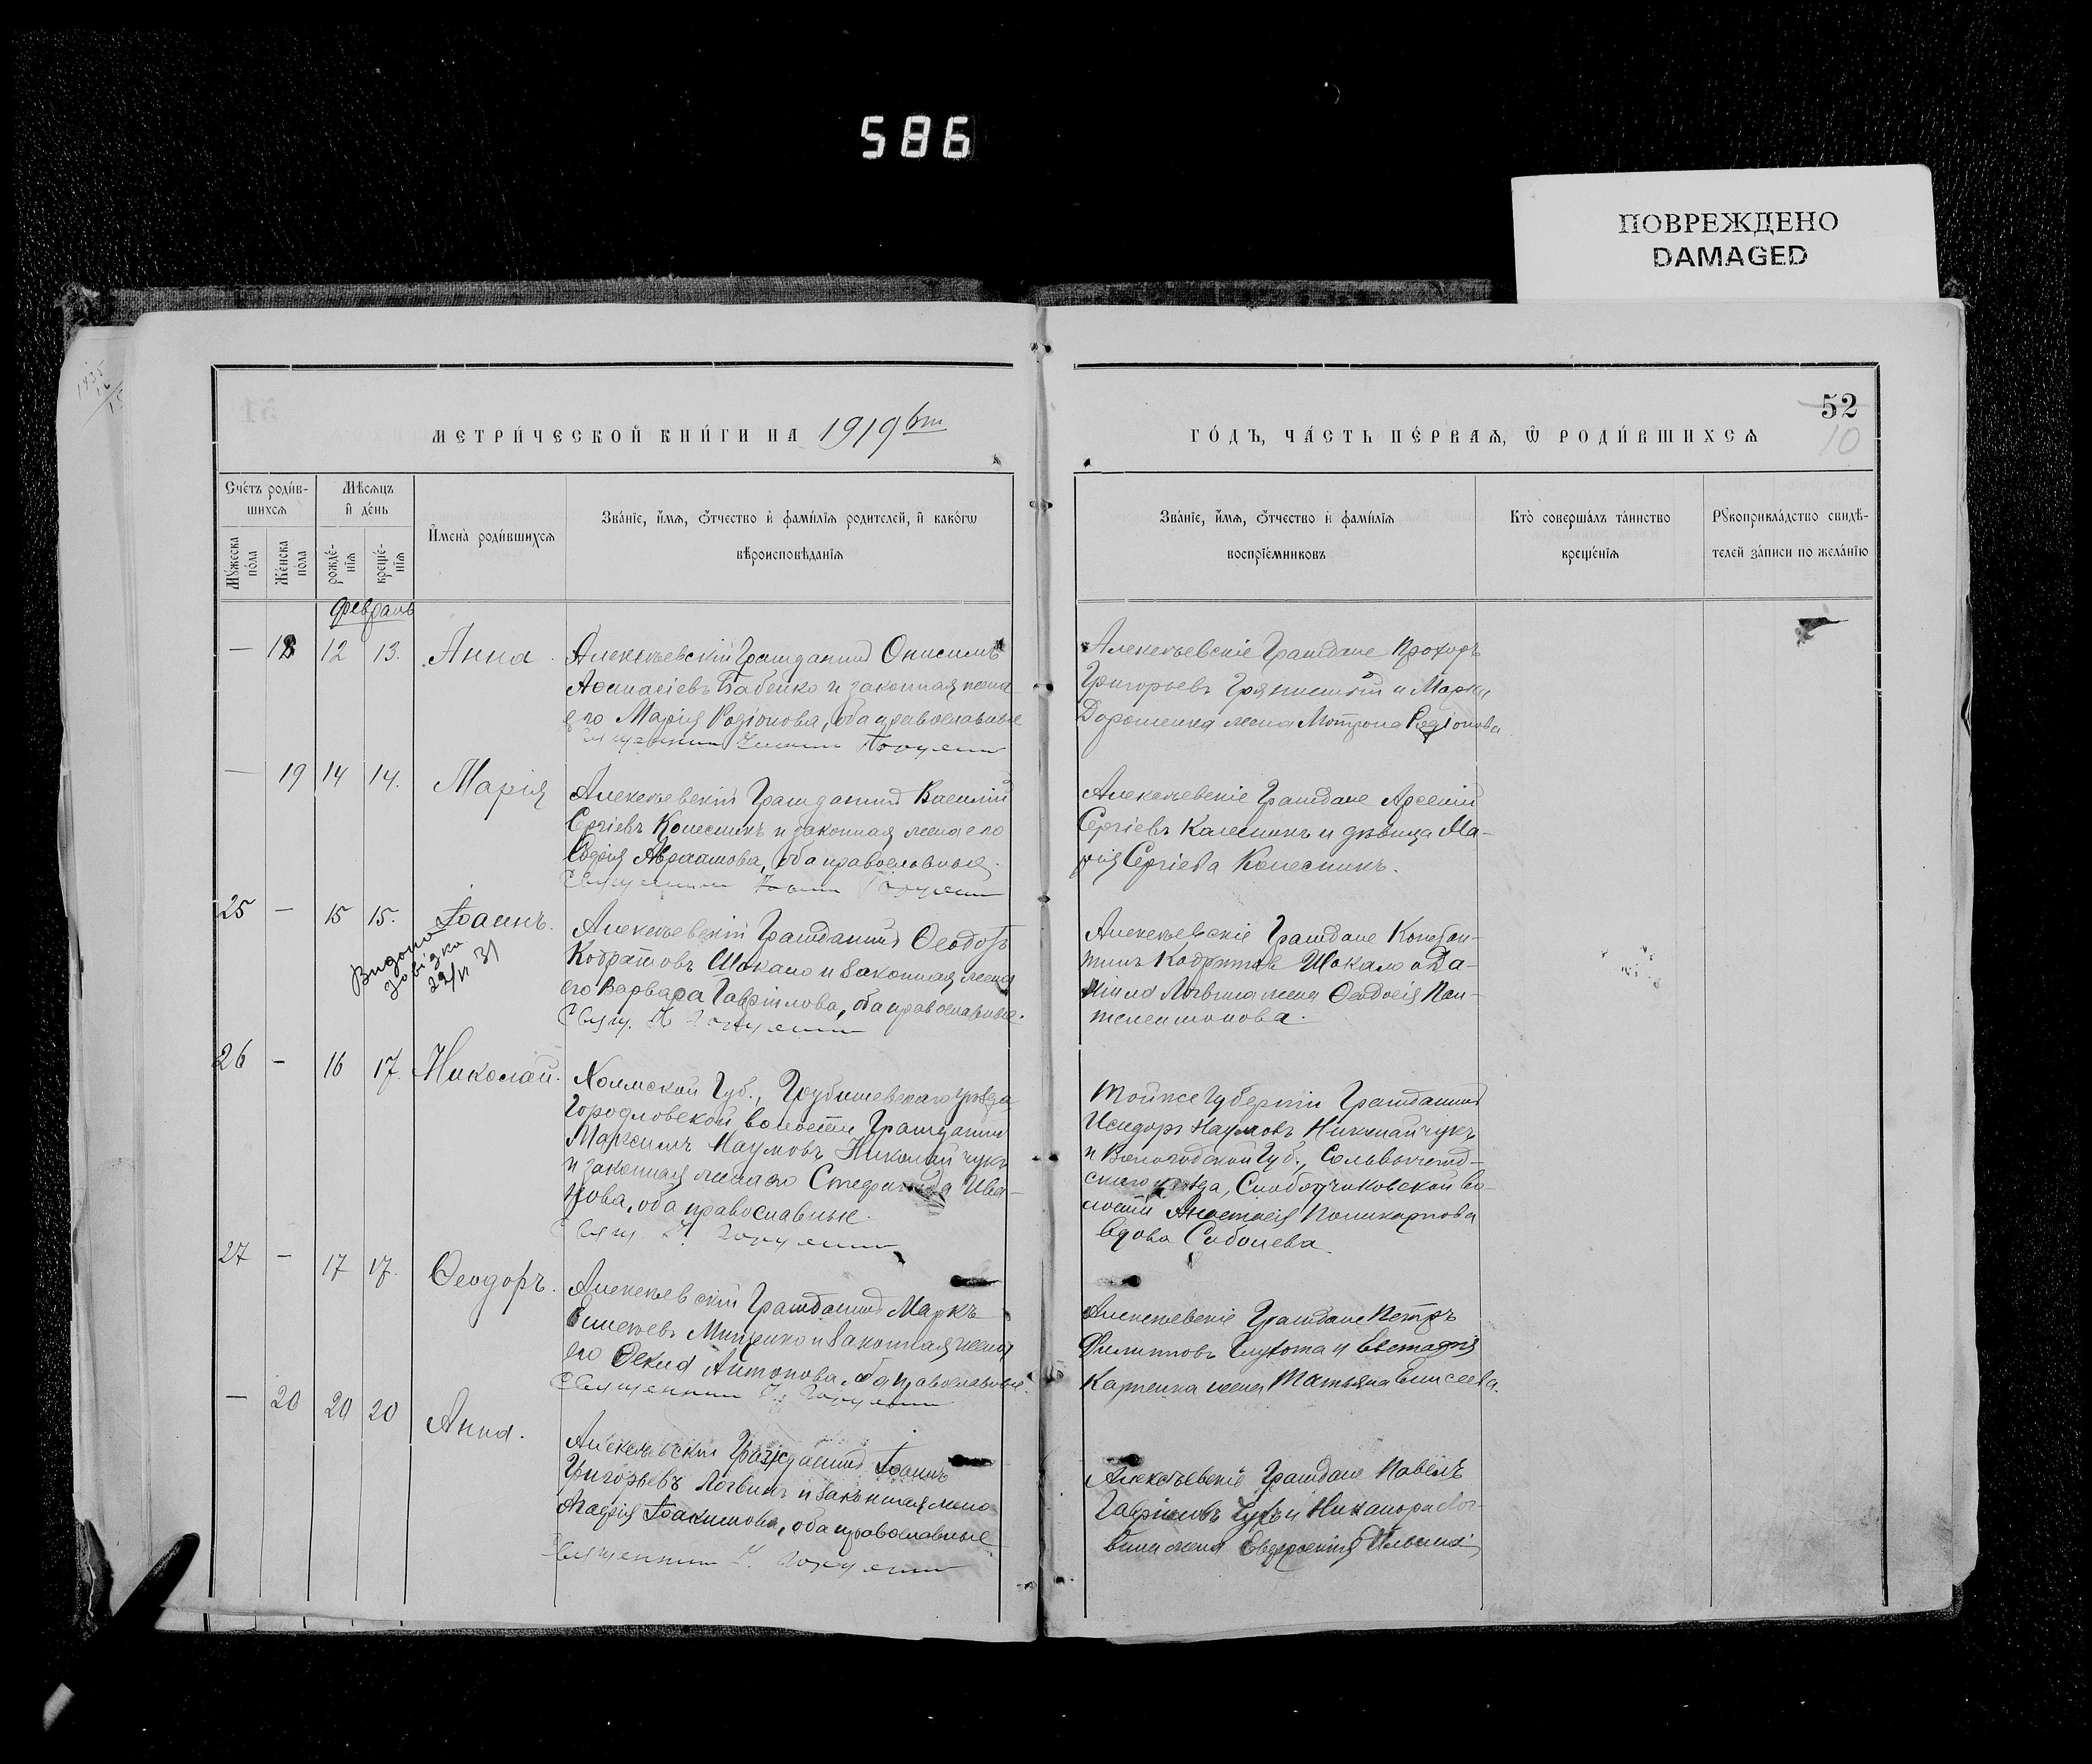 586
ПОВРЕЖДЕНО
DAMAGED
52
10
МЕТРИ́ЧЕСКОЙ КНИ́ГИ НА 1919
ГО́ДЪ, ЧА́СТЬ ПЕ́РВАѦ, Ѡ РОДИ́ВШИХСѦ
Сче́тъ роди́в-
шихсѧ
Мꙋ́жеска по́ла
Же́нска по́ла
Мѣ́сѧцъ
и҆ де́нь
рожде́-
нїѧ
креще́-
нїѧ
И҆мена̀ роди́вшихсѧ
Зва́нїе, и҆́мѧ, ѻ҆́тчество и҆ фамі́лїѧ родителей, и҆ како́гѡ
вѣроисповѣ́данїѧ
Зва́нїе, и҆́мѧ, ѻ҆́тчество и҆ фамі́лїѧ
воспрїе́мниковъ
Кто̀ соверша́лъ та́инство
креще́нїѧ
Рꙋкоприкла́дство свидѣ́-
телей за́писи по жела́нїю
Февраль
— 18 12 13. Анна.
Алексѣевскій Гражданинъ Онисимъ
Аѳанасіевъ Бабенко и законная жена
его Марія Родіонова, оба православные
Алексѣевскіе Граждане Прохоръ
Григорьевъ и Марка
Дорошенка жена Мотрона Родіонова
— 19 14 14. Марія
Алексѣевскій Гражданинъ Василій
Сергіевъ Колесникъ и законная жена его
Софія Авраамова, оба православные.
Священникъ
Алексѣевскіе Граждане Арсеній
Сергіевъ Калесникъ и дѣвица Ма-
рія Сергіева Колесникъ.
25 — 15 15. Іоаннъ.
Видано
довідка
22/VI 31
Алексѣевскій Гражданинъ Ѳеодоръ
Кодратовъ Шокало и законная жена
его Варвара Гавріилова, оба православные.
Свящ.
Алексѣевскіе Граждане Констан-
тинъ Кодратовъ Шокало и Да-
ніила Логвина жена Ѳеодосія Пан-
телеимонова.
26 — 16 17. Николай.
Холмской Губ., Грубишевскаго уѣзда,
Городловской волости Гражданинъ
Максимъ Наумовъ Николайчукъ
и законная жена его Стефанида Ива-
нова, оба православные.
Свящ.
Тойже Губерніи Гражданинъ
Исидоръ Наумовъ Николайчукъ
и Вологодской Губ., Сольвычегод-
скаго уѣзда, во-
лости Анастасія Поликарпова
вдова Соболева.
27 — 17 17. Ѳеодоръ.
Алексѣевскій Гражданинъ Маркъ
Мищенко и законная жена
его Ѳекла Антонова, оба православные.
Священникъ
Алексѣевскіе Граждане Петръ
Филипповъ Глухота и Евстафія
Карпенка жена Татьяна Елисеева.
— 20 20 20 Анна.
Алексѣевскій Гражданинъ Іоаннъ
Григорьевъ Логвинъ и законная жена
Марія Іоакимова, оба православные
Священникъ
Алексѣевскіе Граждане Павелъ
Гавріиловъ и Никанора Лог-
вина жена Евфросинія